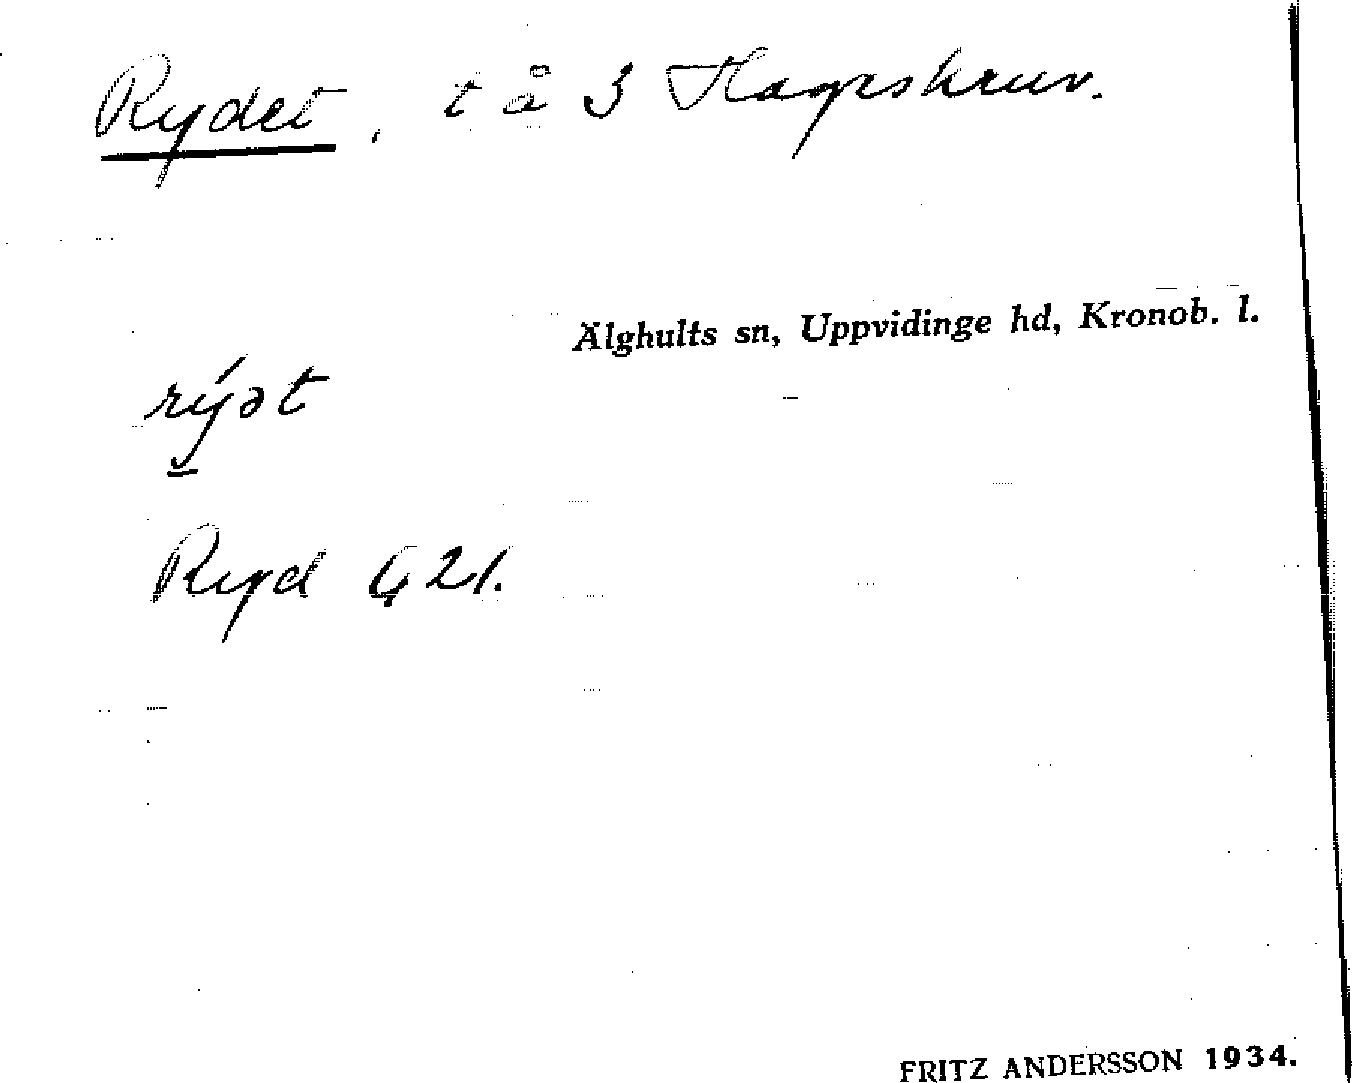 Rydet, t å 3 Hageskruv.
Älghults sn, Uppvidinge hd, Kronob. l.
rýət
Ryd G 21.
FRITZ ANDERSSON 1934.